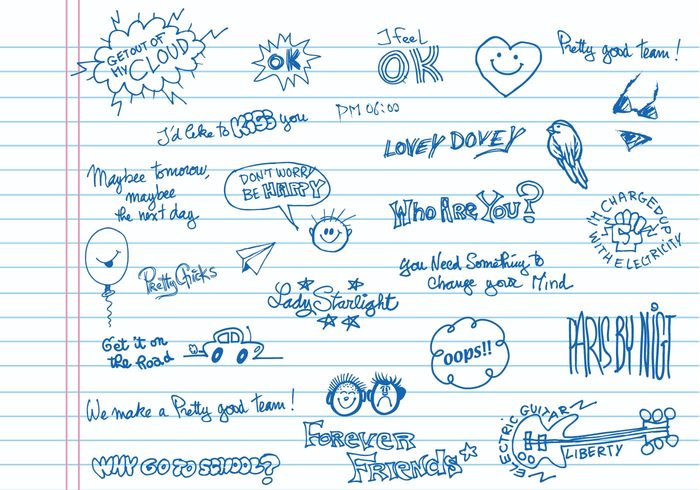 GET OUT OF
MY CLOUD
OK
I feel
OK
Pretty good team!
PM 06:00
I'd like to KISS you
LOVEY DOVEY
Maybee tomorow,
maybee
the next day
DON'T WORRY
BE HAPPY
Who Are You?
I'M CHARGED UP
WITH ELECTRICITY
Pretty Chicks
You Need Something to
Change your Mind
Lady Starlight
Get it on
the Road
oops!!
PARIS BY NIGT
We make a Pretty good team!
FOREVER
FRIENDS
ELECTRIC GUITAR
LIBERTY
WHY GO TO SCHOOL?